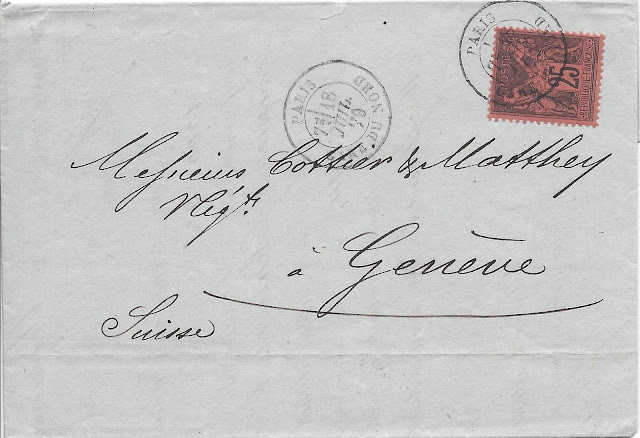 PARIS
PARIS GARE DU NORD
7E/ 18
JUIL.
79
25
REPUBLIQUE FRANCAISE
Messieurs Cottier & Matthey
Négts.
à Genève
Suisse